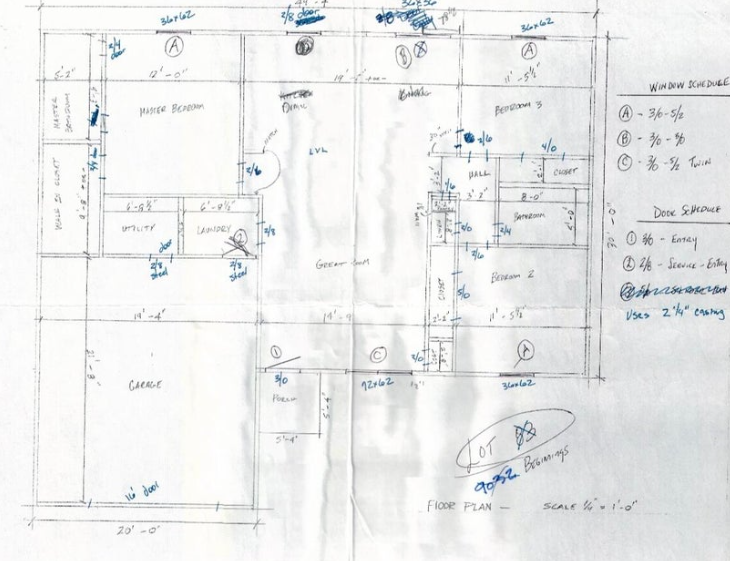 36x62
2/8 door
2/8
36x36
36x62
A
B
A
2/4
door
5'-2"
12'-0"
11'-5½"
MASTER
BATHROOM
MASTER BEDROOM
BEDROOM 3
LVL
30"
2/6
4/0
3/4 door
2/6
HALL
CLOSET
WALK IN CLOSET
3'-2"
8'-0"
6'-8½"
UTILITY
LAUNDRY
2
2/8
LINEN
2/0
2/4
BATHROOM
5'-0"
door
2/8
steel
2/8
steel
GREAT ROOM
2/6
BEDROOM 2
CLOSET
5/0
19'-4"
14'-9
11'-5½"
1
C
A
3/0
92x62
2/0
36x62
GARAGE
PORCH
5'-4"
5'-4"
16' door
20'-0"
30'-0"
LOT
9032 BEGINNINGS
FLOOR PLAN — SCALE ¼" = 1'-0"
WINDOW SCHEDULE
A - 3/0-5/2
B - 3/0 - 3/0
C - 3/0 - 5/2 TWIN
DOOR SCHEDULE
1 3/0 - ENTRY
2 2/8 - SERVICE - ENTRY
Uses 2 ¼" casing